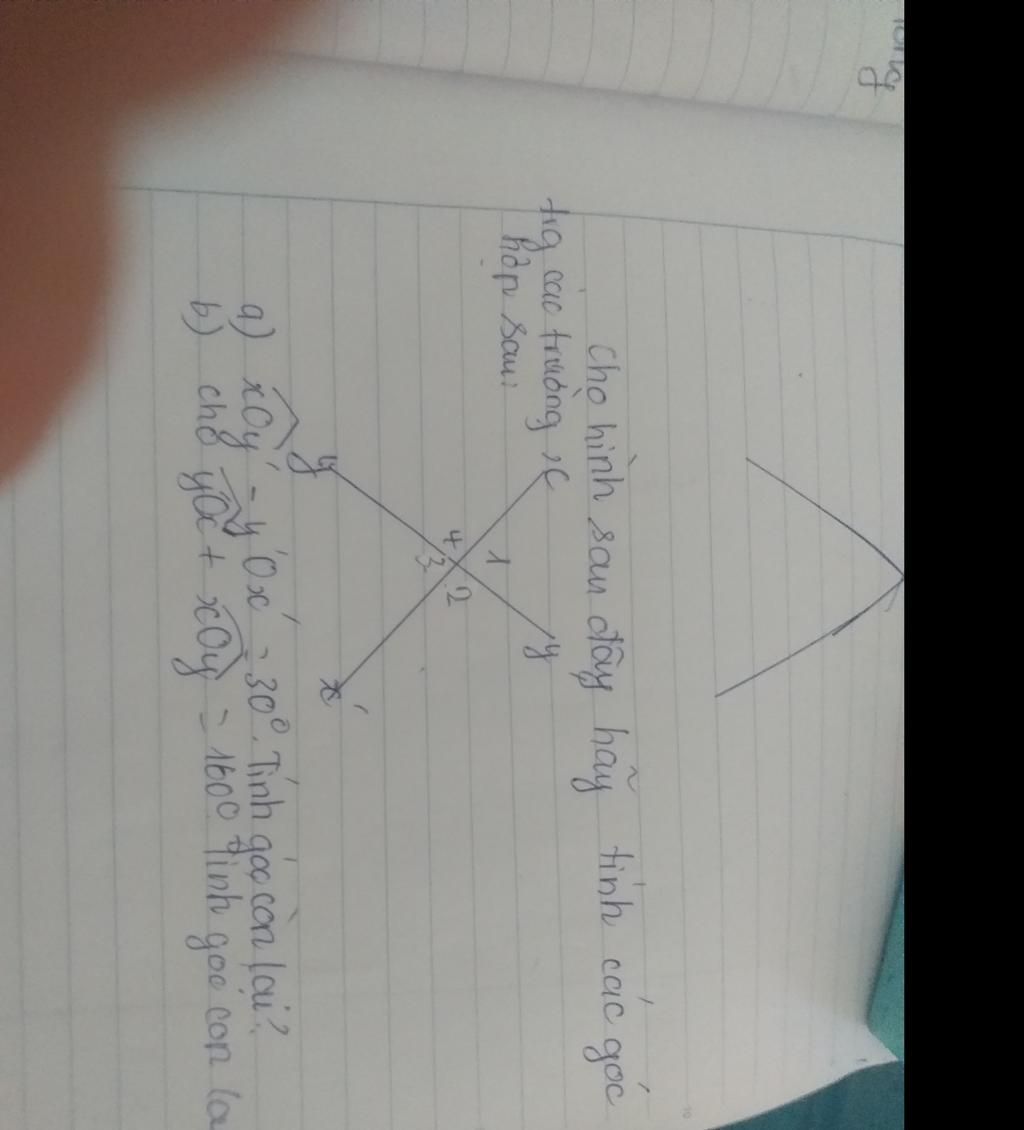 Cho hình sau đây hãy tính các góc
trg các trường
hợp sau:
x y
1
4 2
3
y' x'
a) xOy' - y'Ox' = 30°. Tính góc còn lại?
b) cho + xOy = 160° tính góc còn